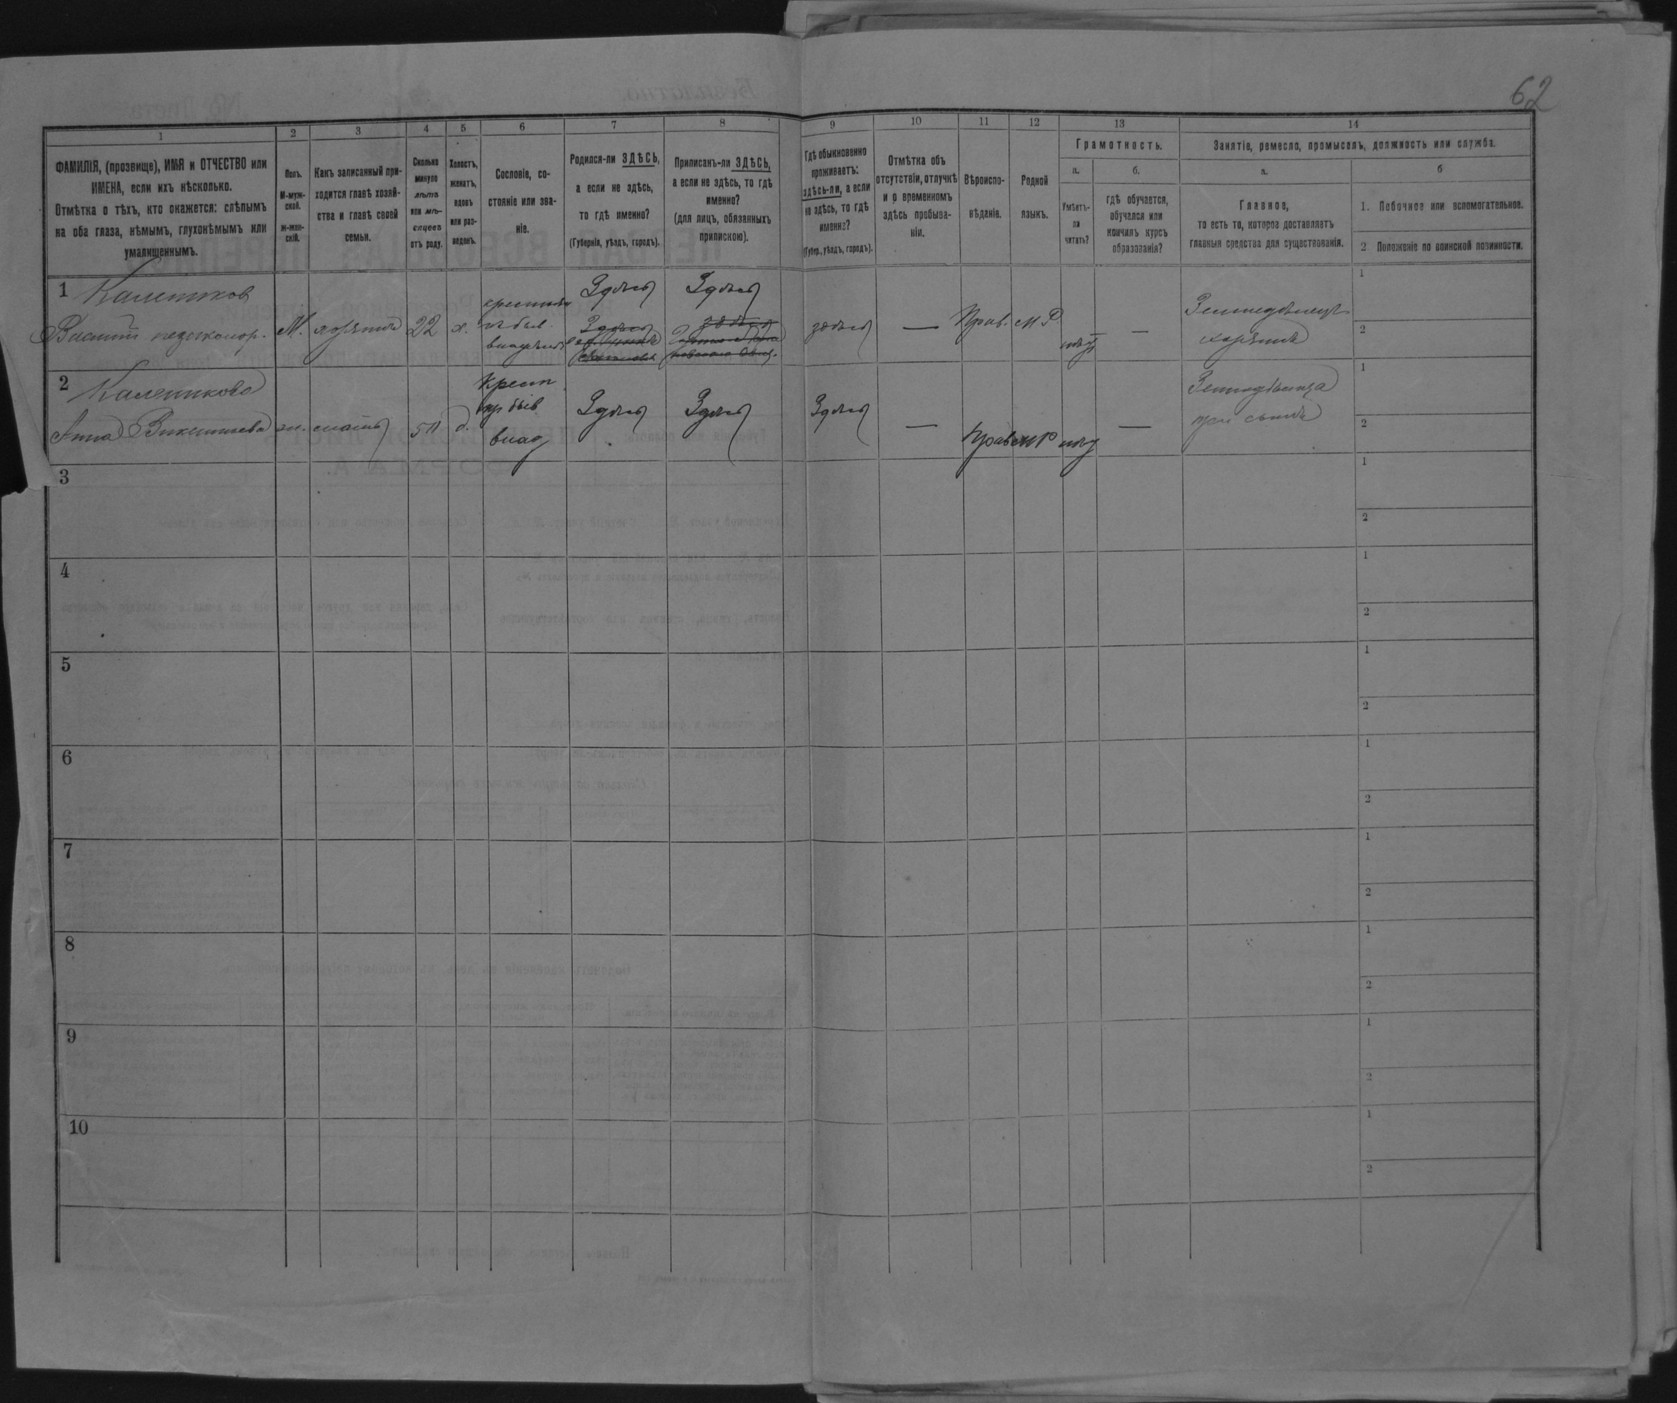 62
1
2
3
4
5
6
7
8
9
10
11
12
13
14
ФАМИЛІЯ, (прозвище), ИМЯ и ОТЧЕСТВО или
ИМЕНА, если ихъ нѣсколько.
Отмѣтка о тѣхъ, кто окажется: слѣпымъ
на оба глаза, нѣмымъ, глухонѣмымъ или
умалишеннымъ.
Полъ.
М-муж-
ской.
ж-жен-
скій.
Какъ записанный при-
ходится главѣ хозяй-
ства и главѣ своей
семьи.
Сколько
минуло
лѣтъ
или мѣ-
сяцевъ
отъ роду.
Холостъ,
женатъ,
вдовъ
или раз-
веденъ.
Сословіе, со-
стояніе или зва-
ніе.
Родился-ли ЗДѢСЬ,
а если не здѣсь,
то гдѣ именно?
(Губернія, уѣздъ, городъ).
Приписанъ-ли ЗДѢСЬ,
а если не здѣсь, то гдѣ
именно?
(для лицъ, обязанныхъ
припискою).
Гдѣ обыкновенно
проживаетъ:
здѣсь-ли, а если
не здѣсь, то гдѣ
именно?
(Губер., уѣздъ, городъ).
Отмѣтка объ
отсутствіи, отлучкѣ
и о временномъ
здѣсь пребыва-
ніи.
Вѣроиспо-
вѣданіе.
Родной
языкъ.
Грамотность.
а.
Умѣетъ-
ли
читать?
б.
гдѣ обучается,
обучался или
кончилъ курсъ
образованія?
Занятіе, ремесло, промыселъ, должность или служба.
а.
Главное,
то есть то, которое доставляетъ
главныя средства для существованія.
б
1. Побочное или вспомогательное.
2 Положеніе по воинской повинности.
1
М.
хозяинъ
22
х.
Здѣсь
Здѣсь
здѣсь
—
Прав.
М Р
—
Земледѣлецъ
хозяинъ
1
2
2
Анна
ж.
мать
51
в.
Крест
влад
Здѣсь
Здѣсь
Здѣсь
—
Прав
м Р
—
1
2
3
1
2
4
1
2
5
1
2
6
1
2
7
1
2
8
1
2
9
1
2
10
1
2